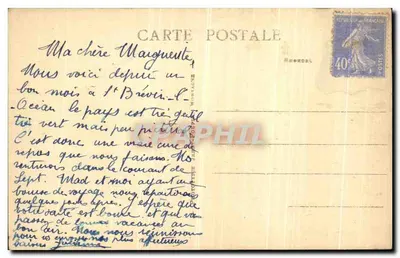 CARTE POSTALE
Ma chère Marguerite,
Nous voici depuis un
bon mois à St Brévin-l-
Océan le pays est très gentil
très vert mais peu
C'est donc une vraie cure de
repos que nous faisons.
dans le courant de
Sept. Mad et moi ayant une
bourse de voyage nous repartirons
quelques jours après. J'espère que
votre santé est bonne et que vous
passez de bonnes vacances au
bon air. Nous nous réunissons
pour vous envoyer nos plus affectueux
baisers
RÉPUBLIQUE FRANÇAISE
40c
CPHIL.COM